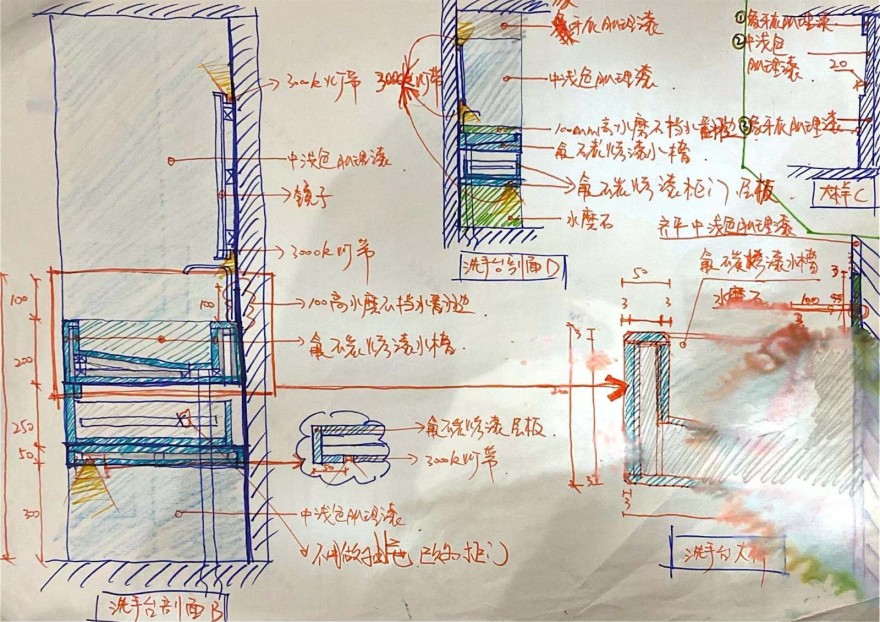 3000k灯带
中浅色肌理漆
镜子
3000k灯带
100高水磨石挡水翻边
氟碳烤漆水槽
氟碳烤漆层板
3000k灯带
中浅色肌理漆
不用做抽屉 改为柜门
100
200
250
50
100
50
洗手台剖面B
3000k灯带
象牙灰肌理漆
中浅色肌理漆
100mm高水磨石挡水翻边
氟碳烤漆水槽
氟碳烤漆柜门 层板
水磨石
洗手台剖面D
① 象牙灰肌理漆
② 中浅色
肌理漆
20
③ 象牙灰肌理漆
大样C
中浅色肌理漆
氟碳烤漆水槽
水磨石
50
3
3
3
3
3
3
100
3
洗手台大样